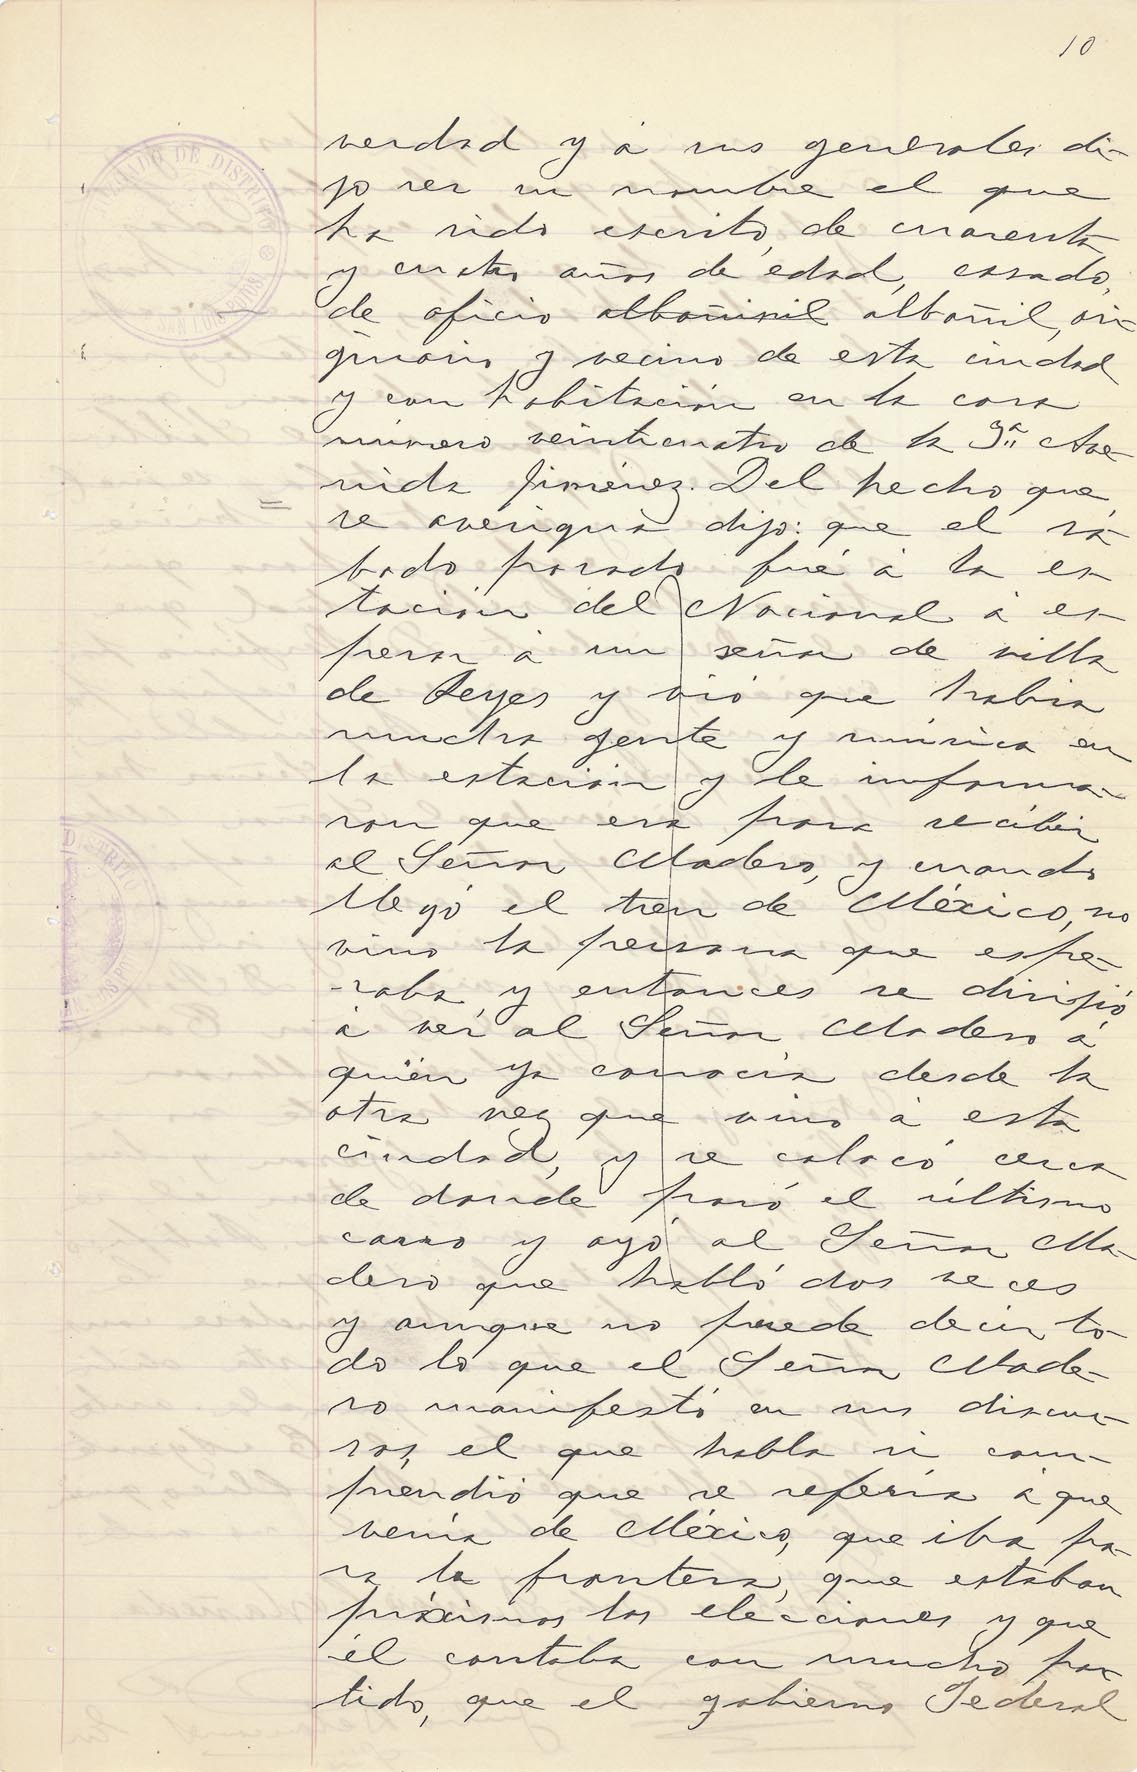 10
verdad y á sus generales di-
jo ser su nombre el que
ha sido escrito, de cuarenta
y cuatro años de edad, casado,
de oficio albañinil albañil, ori-
ginario y vecino de esta ciudad
y con habitación en la casa
número veinticuatro de la 3ª Ave-
nida Jiménez. Del hecho que
se averigua dijo: que el sá-
bado pasado fué á la es-
tación del Nacional á es-
perar á un señor de villa
de Reyes y vió que habia
mucha gente y música en
la estación y le informa-
ron que era para recibir
al Señor Madero, y cuando
llegó el tren de México, no
vino la persona que espe-
-raba y entonces se dirijió
á ver al Señor Madero á
quien ya conocía desde la
otra vez que vino á esta
ciudad, y se colocó cerca
de donde paró el último
carro y oyó al Señor Ma-
dero que habló dos veces
y aunque no puede decir to-
do lo que el Señor Made-
ro manifestó en sus discur-
sos, el que habla si com-
prendió que se refería á que
venía de México, que iba pa-
ra la frontera, que estaban
próximas las elecciones y que
él contaba con mucho par-
tido, que el gobierno Federal
JUZGADO DE DISTRITO
SAN LUIS POTOSI
DISTRITO